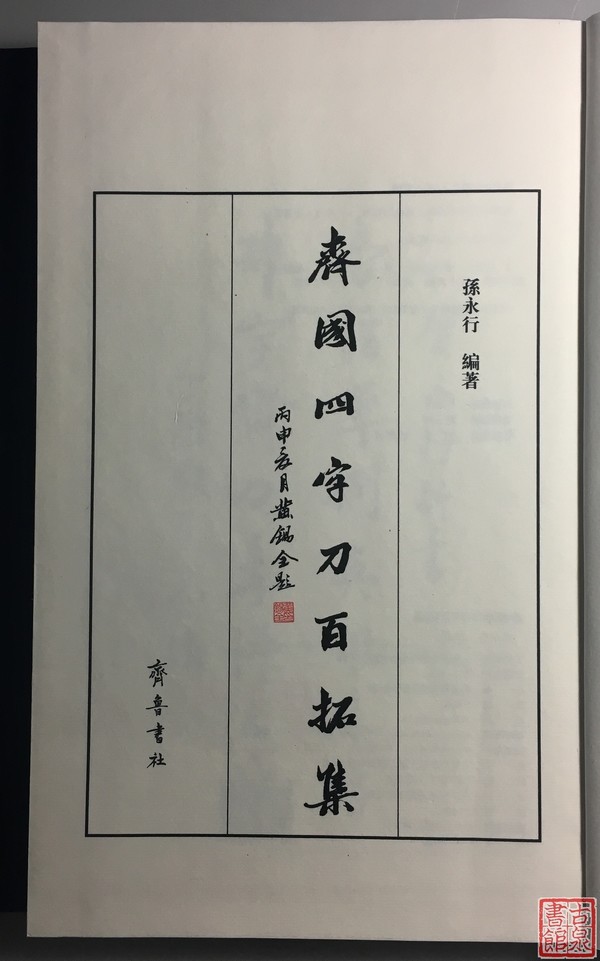 孫永行 編著
齊國四字刀百拓集
丙申辰月黃錫全題
齊魯書社
古泉書館